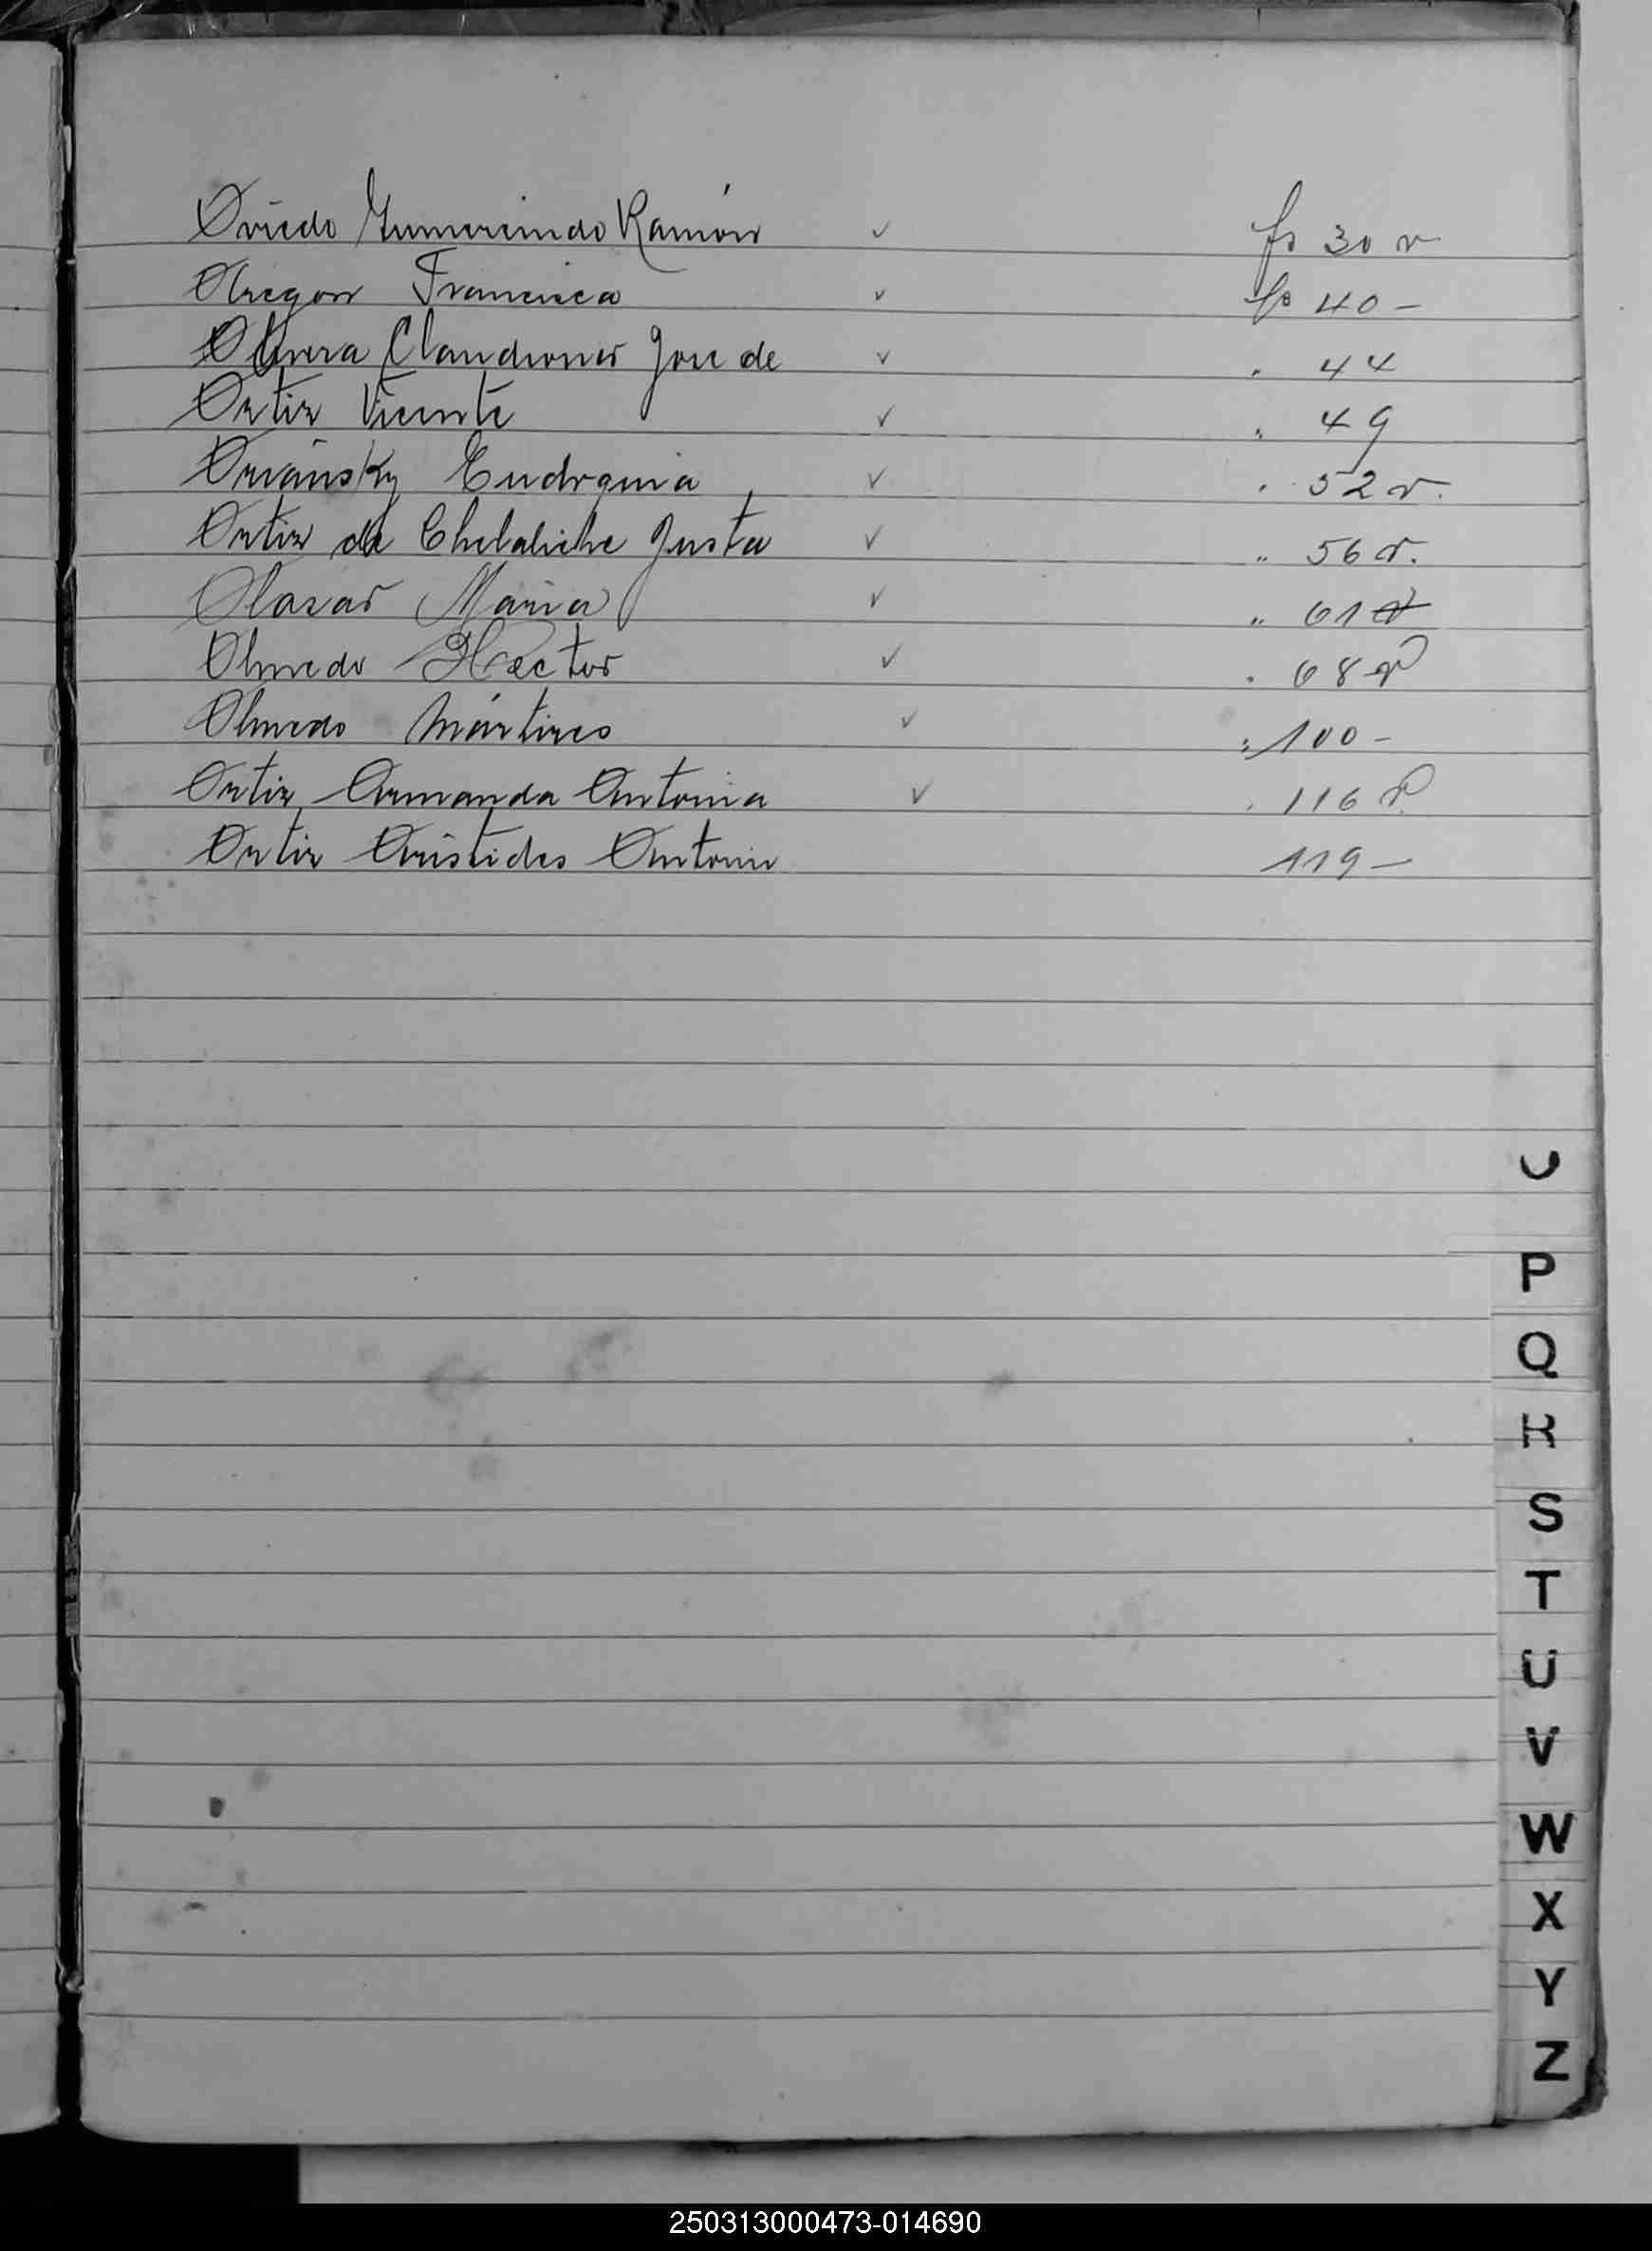 Oviedo Gumercindo Ramón ✓ fs 30 v
Obregon Francisca ✓ fs 40 -
Olivera Claudionor Jose de ✓ " 44
Ortiz Vicente ✓ " 49
Ortiz de Chelaliche Justa ✓ " 56 v.
Olazar Maria ✓ " 61
Olmedo Hector ✓ " 68 v
Olmedo Mártires ✓ " 100 -
Ortiz Armanda Antonia ✓ " 116 v
Ortiz Aristides Antonio 119 -
O
P
Q
R
S
T
U
V
W
X
Y
Z
250313000473-014690